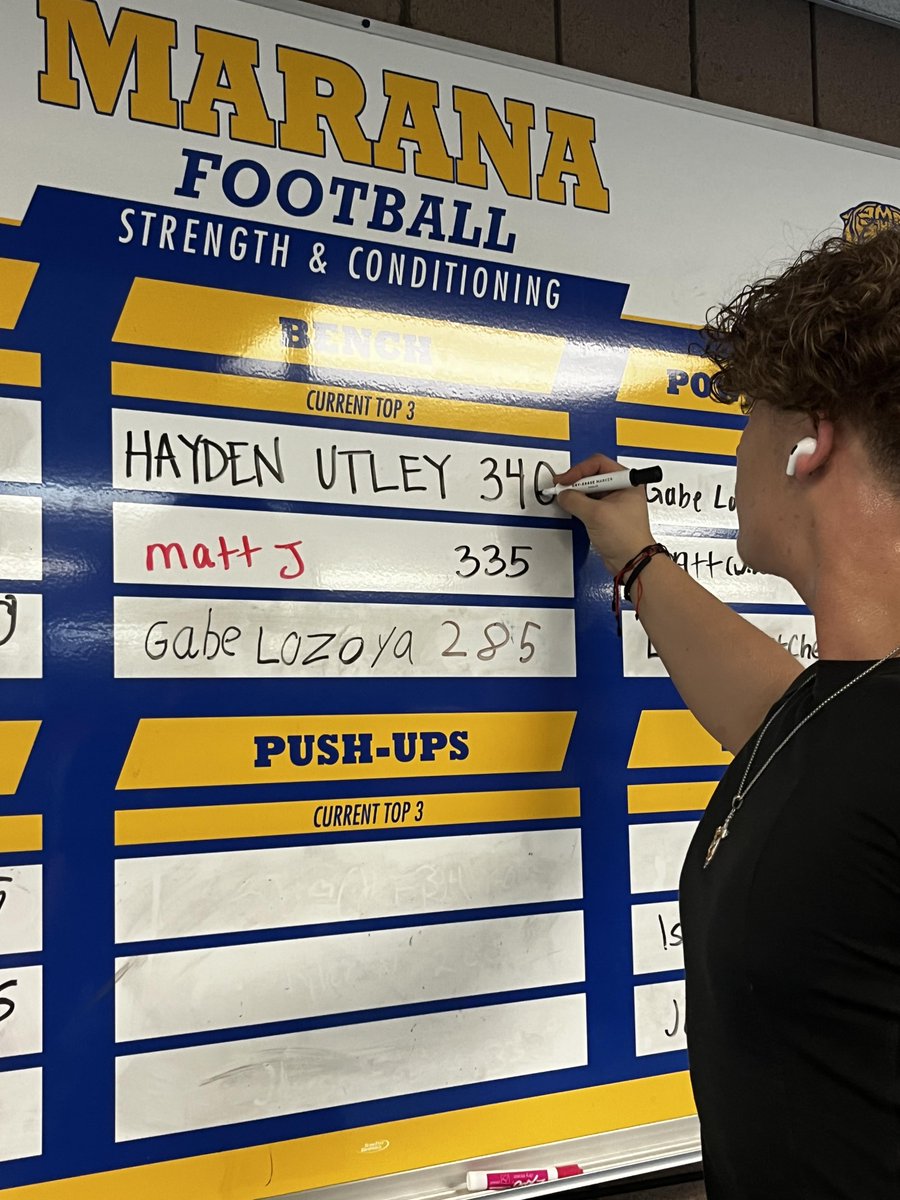 MARANA
FOOTBALL
STRENGTH & CONDITIONING
BENCH
CURRENT TOP 3
HAYDEN UTLEY 340
Matt J 335
Gabe Lozoya 285
PO
Gabe Lo
PUSH-UPS
CURRENT TOP 3
Is
J